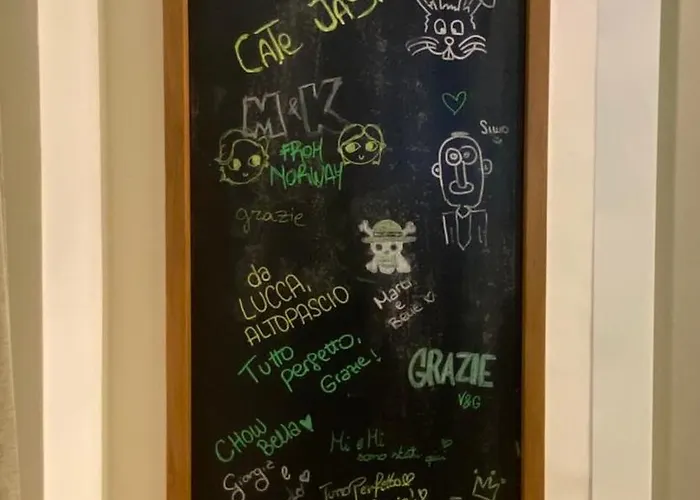 CATE
M&K
FROM
NORWAY
Simo
grazie
da
LUCCA,
ALTOPASCIO
Marti
e
Belle
Tutto
perfetto,
Grazie!
GRAZIE
V&G
CHOW
Bella
Mi e Mi
sono stati qui
Giorgia e
Tutto Perfetto